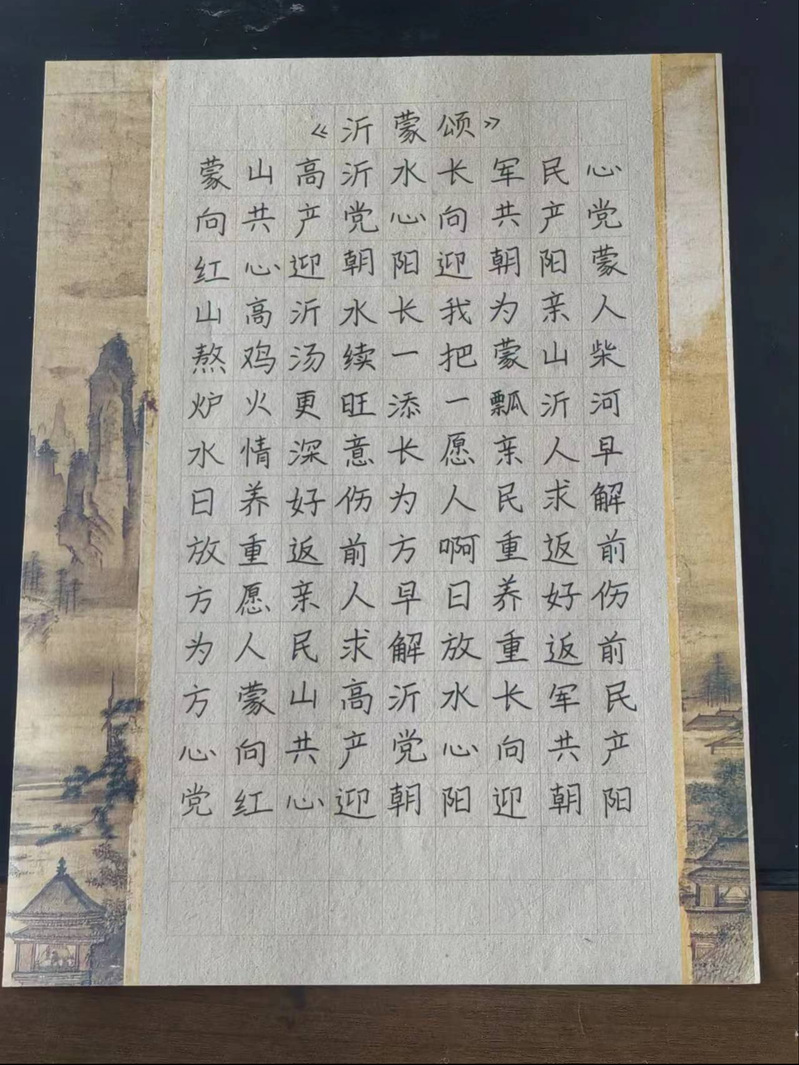 《沂蒙颂》
蒙山高沂水长军民心
向共产党心向共产党
红心迎朝阳迎朝阳蒙
山高沂水长我为亲人
熬鸡汤续一把蒙山柴
炉火更旺添一瓢沂河
水情深意长愿亲人早
日养好伤为人民求解
放重返前方啊重返前
方愿亲人早日养好伤
为人民求解放重返前
方蒙山高沂水长军民
心向共产党心向共产
党红心迎朝阳迎朝阳